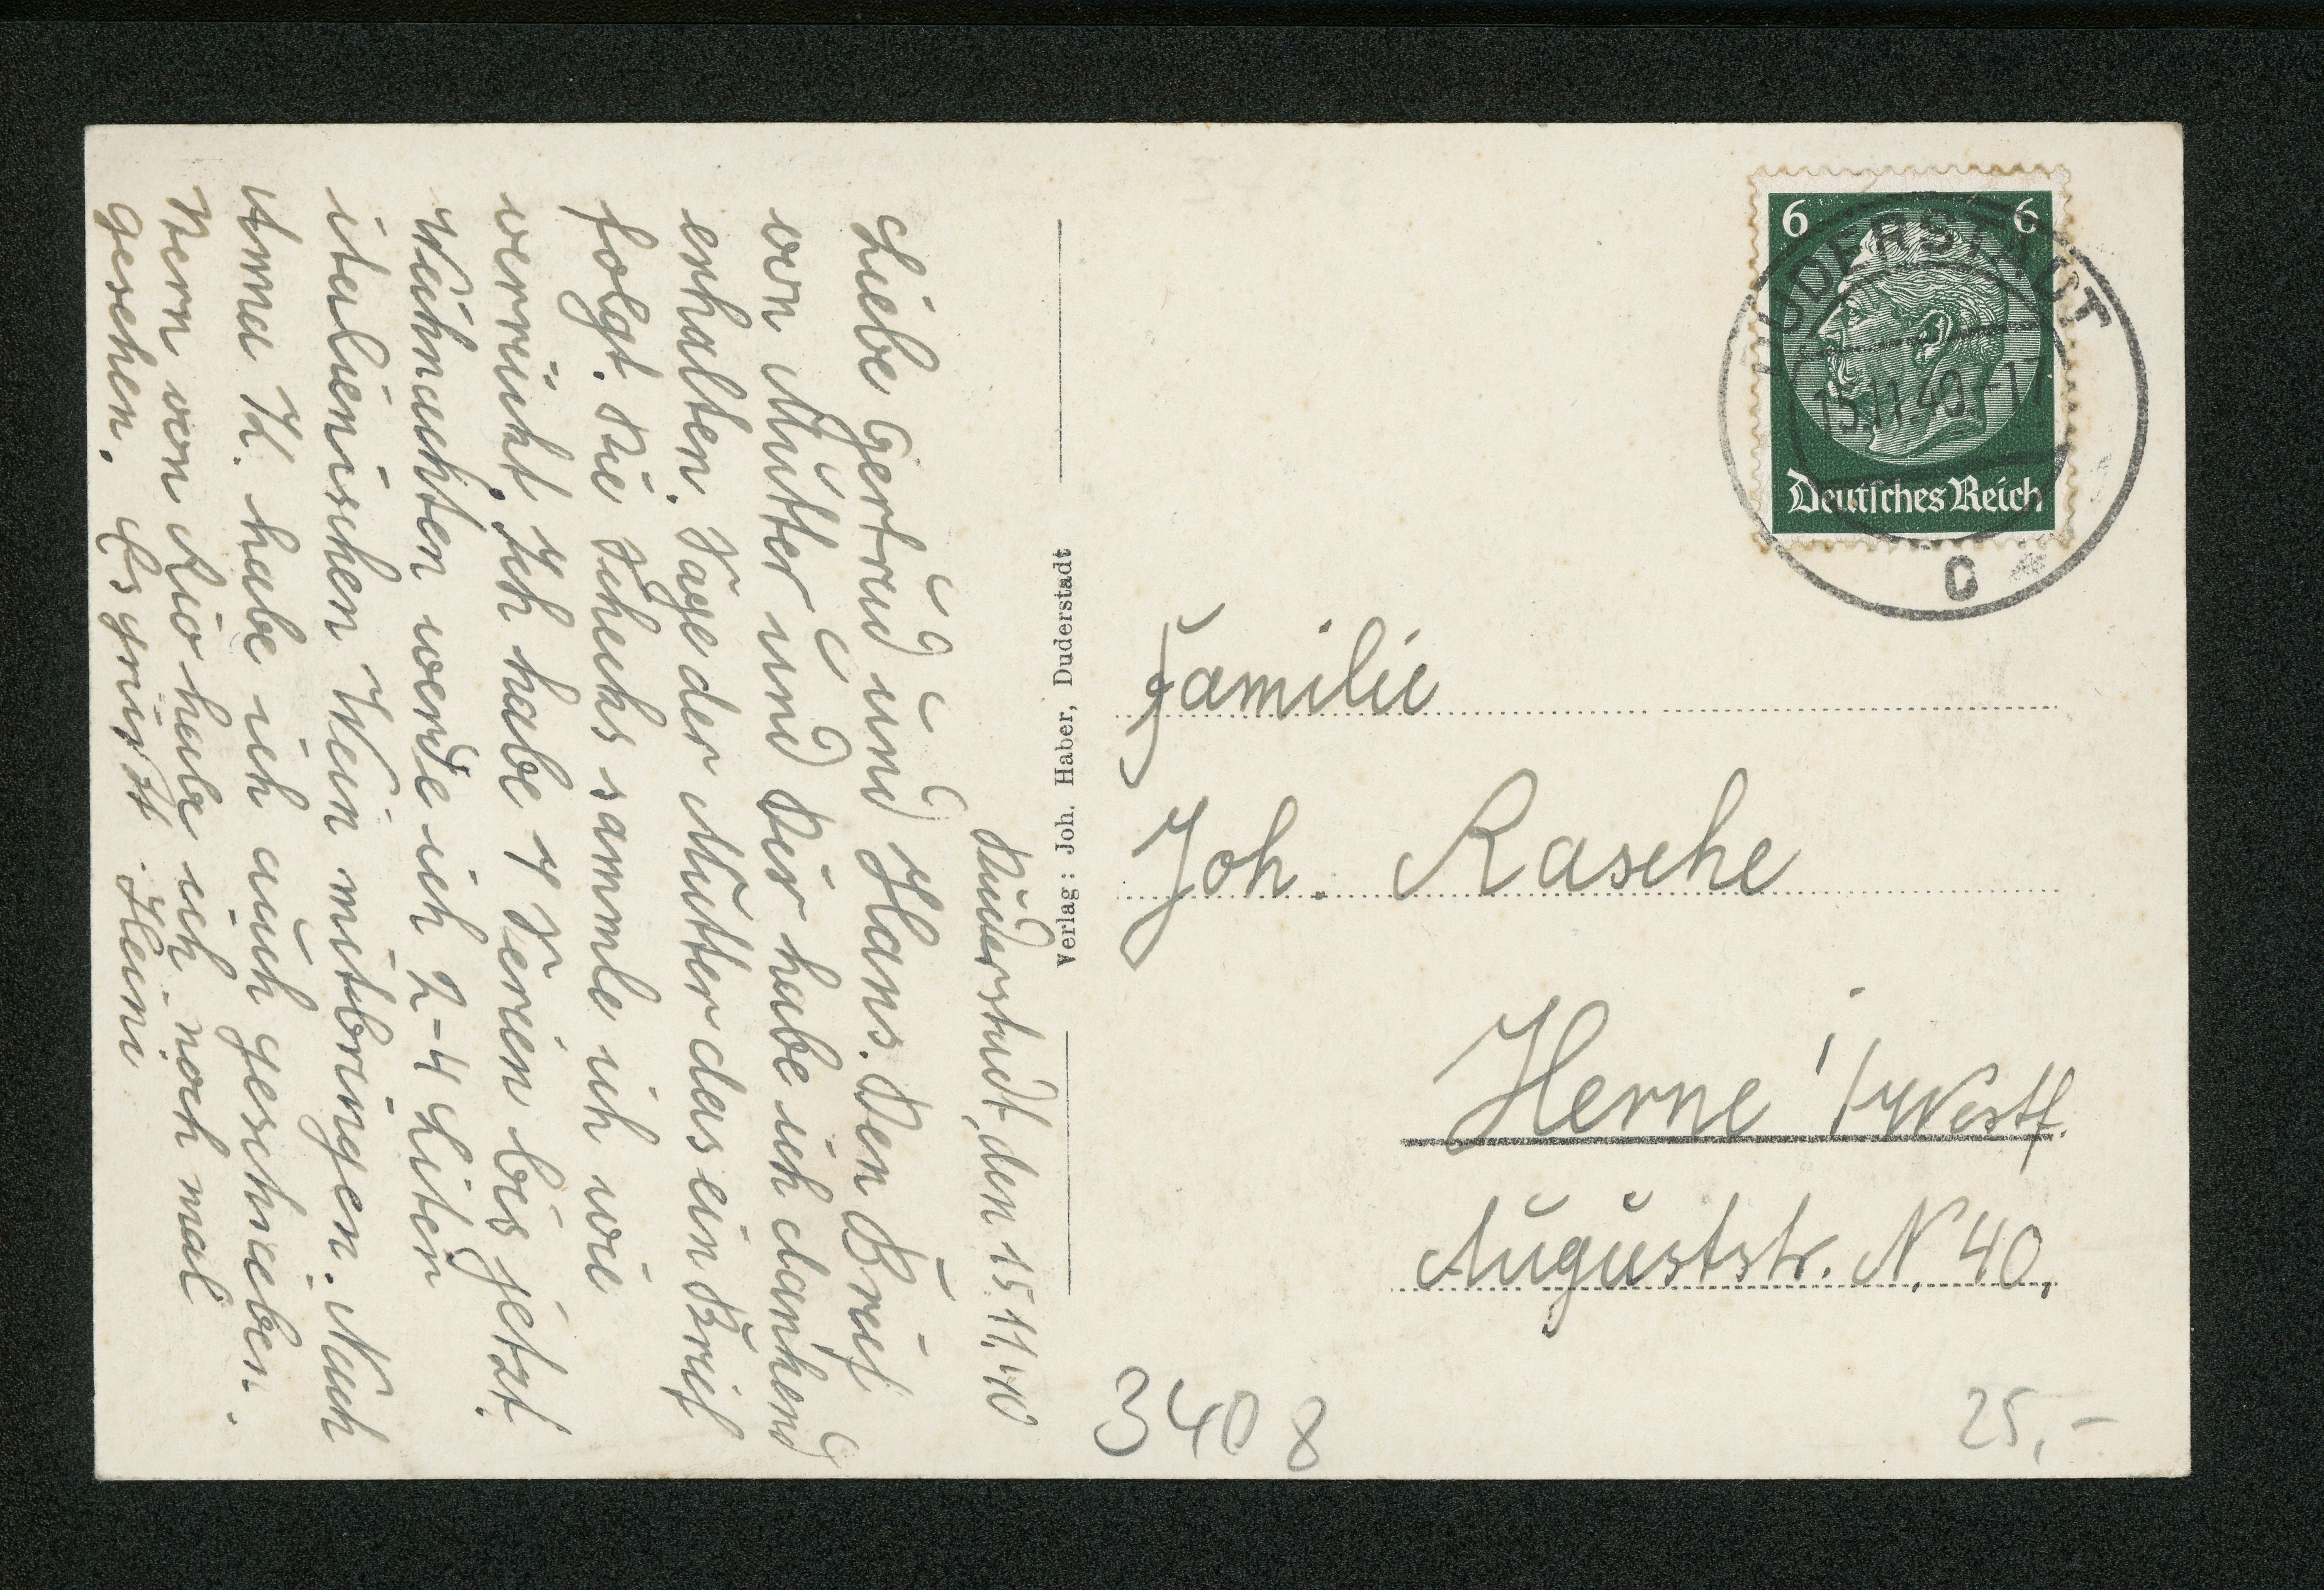 Duderstadt, den 15.11.40
Liebe Gertrud und Hans. Den Brief
von Mutter und Dir habe ich dankend
enhalten. Tage der Mutter das ein Brief
folgt. Die Schecks sammle ich wie
verrückt. Ich habe 7 Serien bis jetzt.
Weihnachten werde ich 2-4 Liter
italienischen Wein mitbringen. Nach
Anna K. habe ich auch geschrieben.
Stern von Rio habe ich noch mal
gesehen. Es grüßt Heini
Verlag: Joh. Haber, Duderstadt
6 6
Deutsches Reich
DUDERSTADT
15.11.40.-17
c
Familie
Joh. Rasche
Herne i/Westf.
Auguststr. N. 40.
3408
25,-